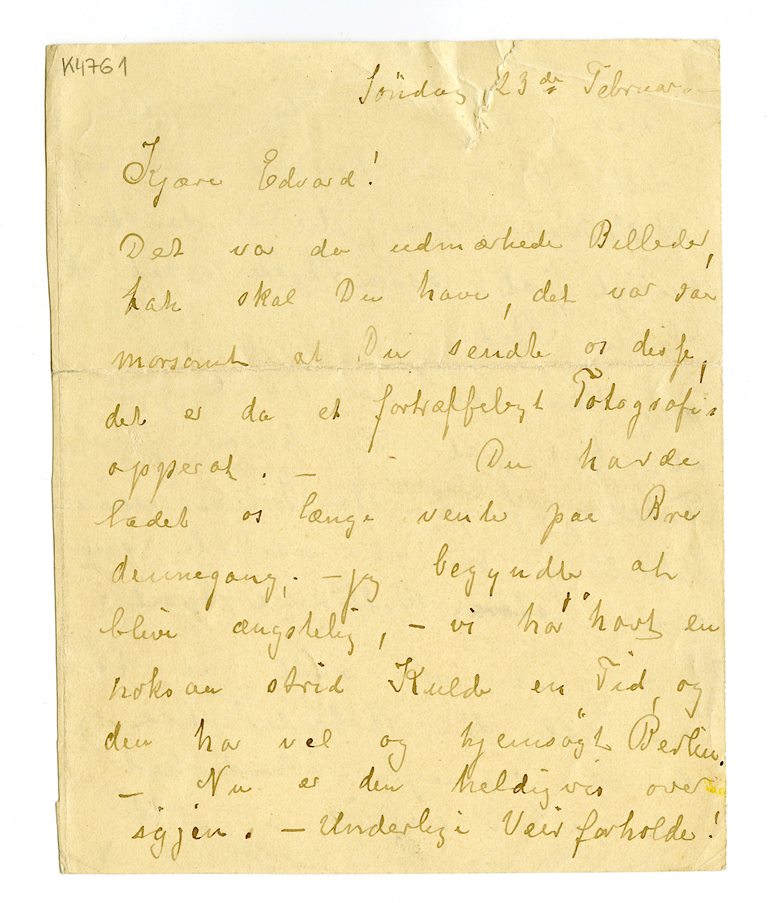 K4761
Söndag 23de Februar
Kjære Edvard!
Det var da udmærkede Billeder,
tak skal Du have, det var saa
morsomt at Du sendte os disse,
det er da et fortræffeligt Fotografi-
apperat. — Du havde
ladet os længe vente paa Brev
dennegang, — jeg begyndte at
blive ængstelig, — vi har havt en
noksaa strid Kulde en Tid, og
den har vel og hjemsøgt Berlin.
— Nu er den heldigvis over
igjen. — Underlige Veirforholde!